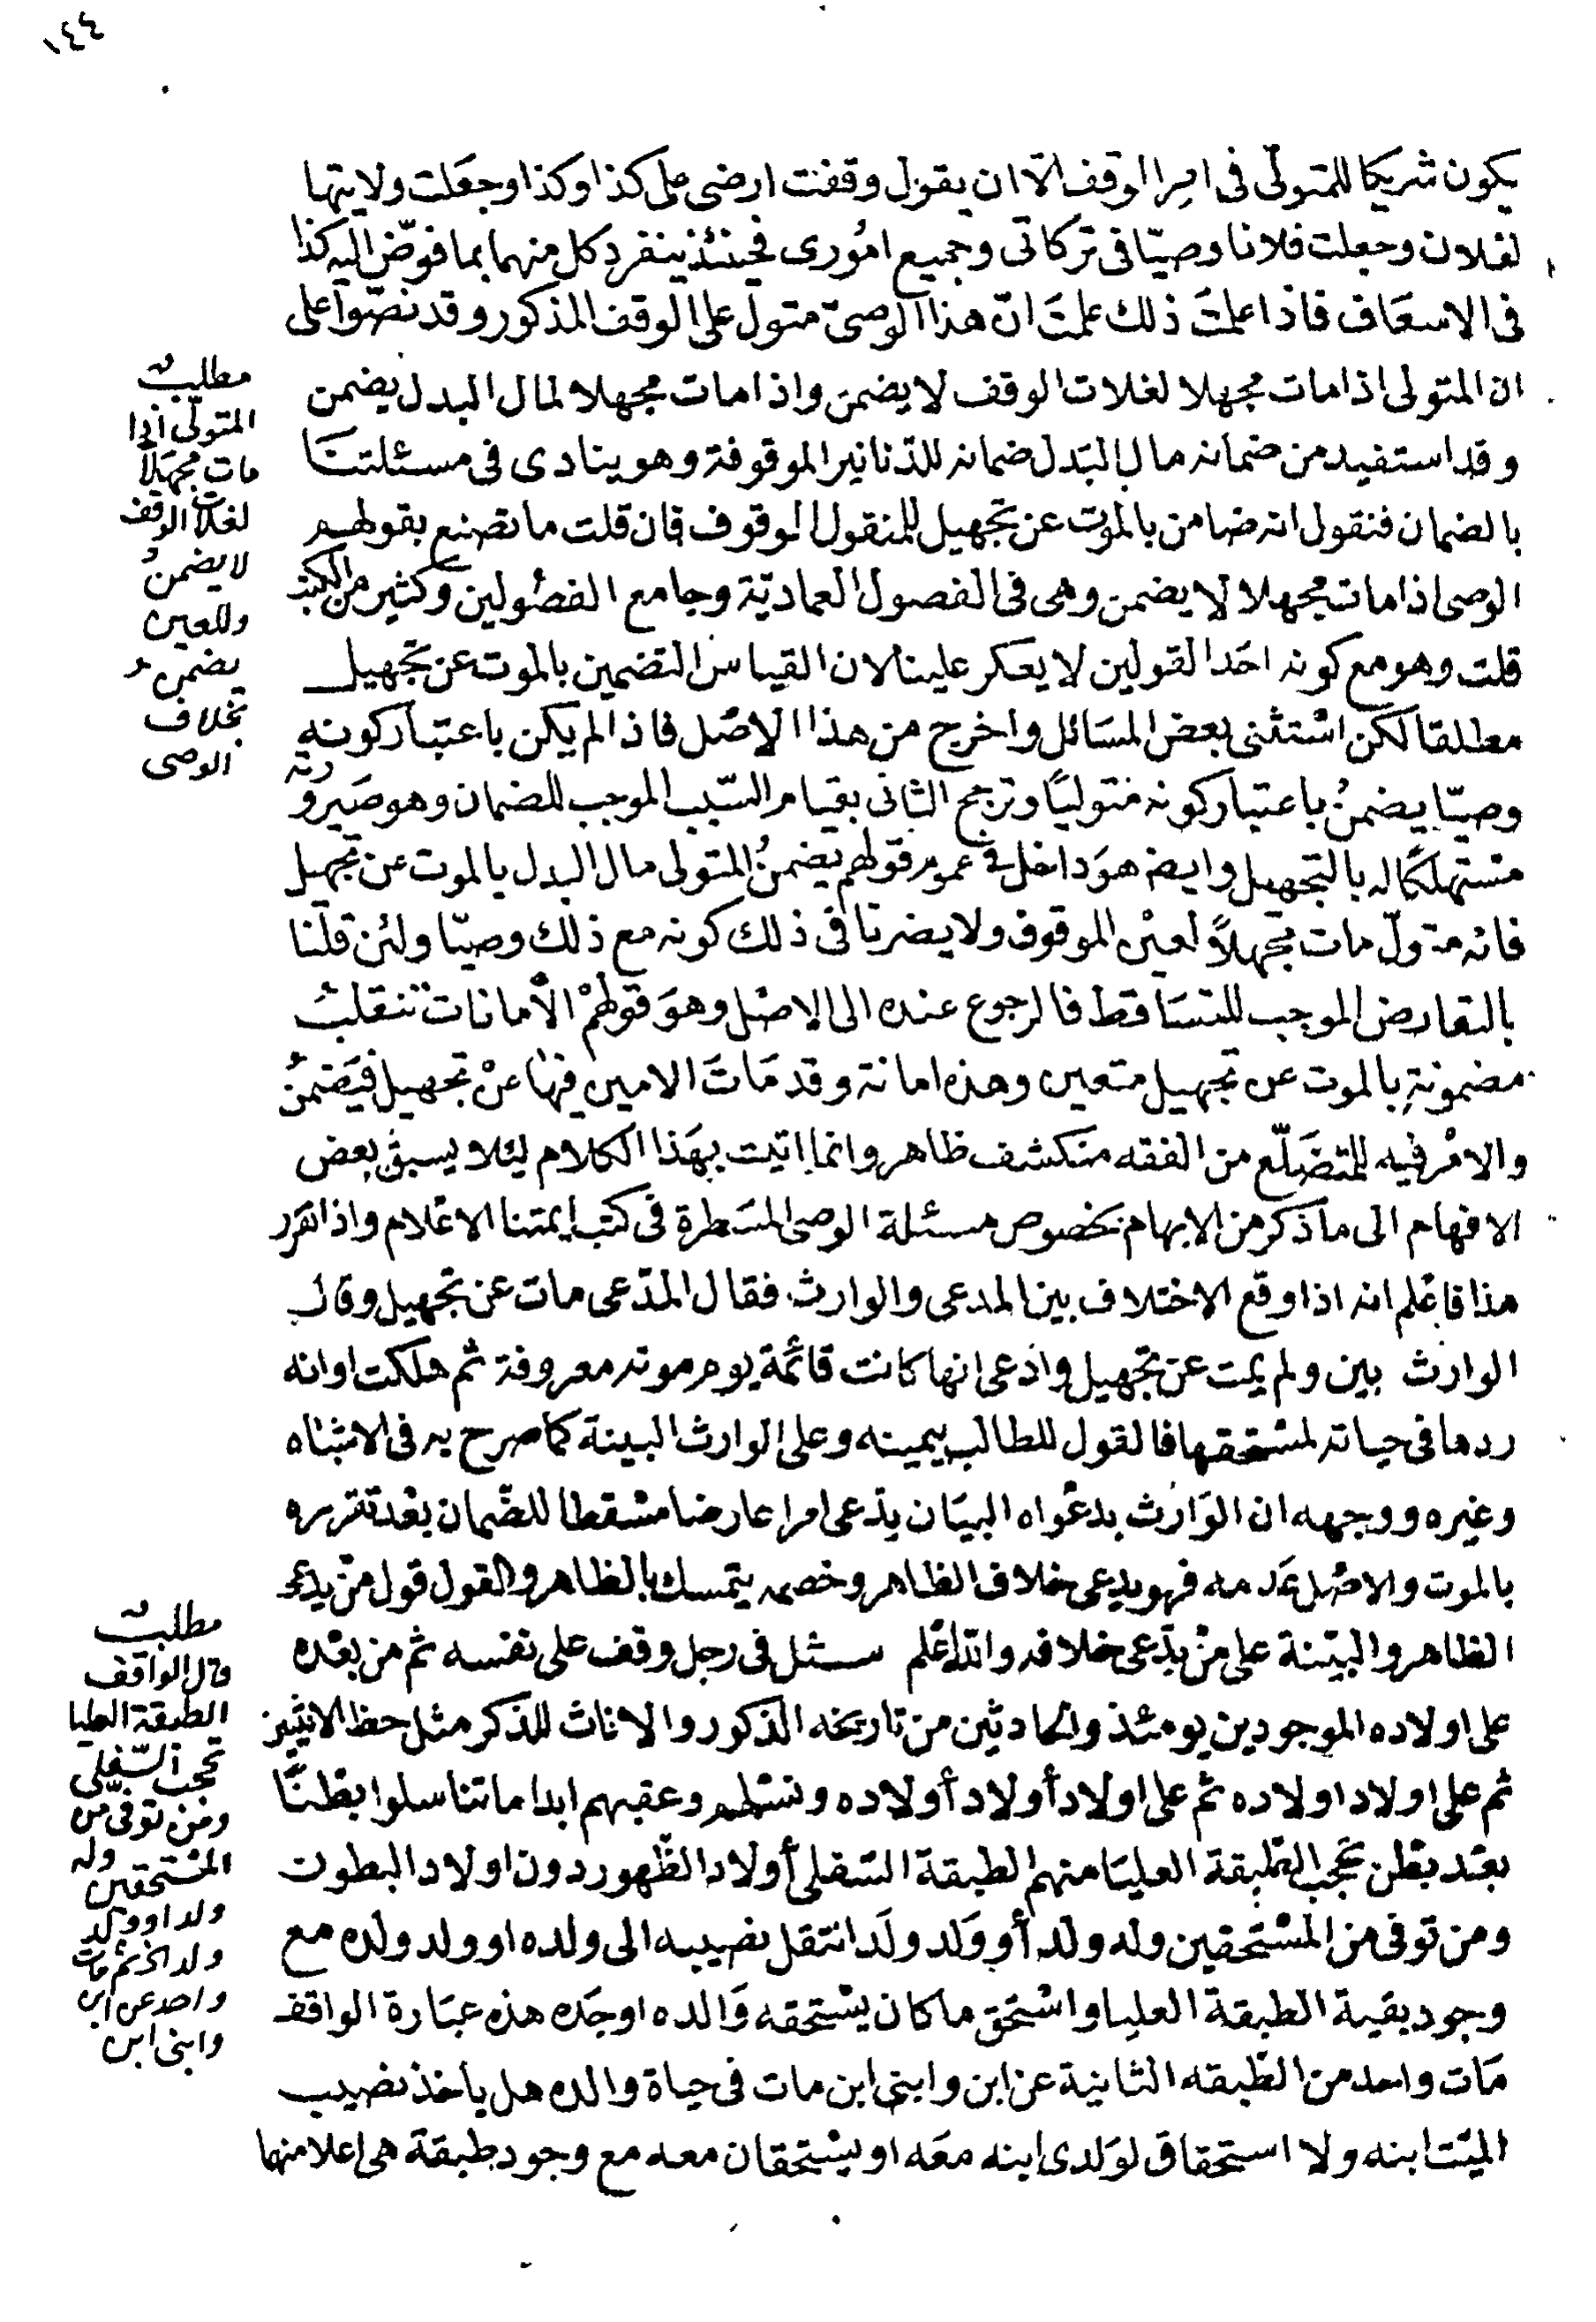 ١٤٤
يكون شريكا للمتولّى فى امرالوقف الّا ان يقول وقفت ارضى على كذا وكذا وجعَلت ولايتها
لفلان وجعلت فلانا وصيّا فى تركاتى وجميع امُورى فحينئذ ينفرد كل منهما بما فوّض اليه كذا
فى الاسعَاف فاذا علمتَ ذلك علمتَ انّ هذا الوصىّ متول على الوقف المذكور وقد نصّوا على
ان المتولى اذا مات مجهلا لغلات الوقف لا يضمن واذا مات مجهلا لمال البدل يضمن
وقد استفيد من ضمانه مال البَدل ضمانه للدّنانير الموقوفة وهو ينادى فى مسئلتنا
بالضمان فنقول انه ضامن بالموت عن تجهيل للمنقول الموقوف فان قلت ما تصنع بقولهم
الوصى اذا مات مجهلا لا يضمن وهى فى الفصول العماديّة وجامع الفصُولين وكثير من الكتب
قلت وهو مع كونه احَد القولين لا يعكر علينا لان القياس التضمين بالموت عن تجهيل
مطلقا لكن اسْتثنى بعض المسَائل واخرج من هذا الاصْل فاذا لم يكن باعتبار كونه
وصيّا يضمنُ باعتبار كونه متوليًا وترجح الثانى بقيام السّبب الموجب للضمان وهو صَيرورته
مسْتهلكًا له بالتجهيل وايضا هوَ داخل فى عموم قولهم يضمنُ المتولى مال البدل بالموت عن تجهيل
فانه متولّ مات مجهلاً لعين الموقوف ولا يضرنا فى ذلك كونه مع ذلك وصيّا ولئن قلنا
بالتعارض الموجب للتسَاقط فالرجوع عنده الى الاصْل وهوَ قولهمْ الأمانات تنقلبُ
مضمونةٍ بالموت عن تجهيل متعين وهذه امانة وقد مَاتَ الامين فيهَا عنْ تجهيل فيَضمنُ
والامْر فيه للمتضَلّع من الفقه منكشف ظاهر وانما اتيت بهَذا الكلام ليئلا يسبق بعض
الافهام الى ما ذكر من الابهام بخصوص مسئلة الوصى المسَطرة فى كتب ايمتنا الاعْلام واذا تقرر
هذا فاعْلم انه اذا وقع الاختلاف بين المدعى والوارث فقال المدّعى مات عن تجهيل وقال
الوارث بين ولم يمت عن تجهيل وادّعى انها كانت قائمة يوم موته معروفة ثم هلكت او انه
ردها فى حياته لمستحقها فالقول للطالب بيمينه وعلى الوارث البينة كما صرح به فى الاشباه
وغيره ووجهه ان الوَارث بدعْواه البيَان يدّعى امرا عارضا مسْقطا للضّمان بعْد تقرره
بالموت والاصْل عَدمه فهو يدعى خلاف الظاهر وخصمه يتمسك بالظاهر والقول قول منْ يدعى
الظاهر والبيّنة على منْ يدّعى خلافه والله اعْلم سئل فى رجل وقف على نفسه ثم من بعْده
على اولاده الموجودين يومئذ والحادثين من تاريخه الذكور والاناث للذكر مثل حظ الانثيين
ثم على اولاد اولاده ثم على اولاد أولاد أولاده ونسْلهم وعقبهم ابدا ما تناسلوا بطْنًا
بعْد بطْن تحجب الطّبقة العليَا منهم الطبقة السّفلى أولاد الظّهور دون اولاد البطون
ومن توفى من المسْتحقين وله ولد أو وَلد ولَد انتقل نصيبه الى ولده او ولد ولده مع
وجود بقية الطبقة العليا واسْتحَق ما كان يسْتحقه وَالده او جَده هذه عبَارة الواقف
مَات واحد من الطّبقه الثانية عن ابن وابنى ابن مات فى حياة والده هل ياخذ نصيب
الميّت ابنه ولا استحقاق لوَلدى ابنه معَه او يسْتحقان معه مع وجود طبقة هى اعلا منها
مطلب
المتولّى اذا
مات مجهَلاً
لغلات الوقف
لا يضمنُ
وللعين
يضمن
بخلاف
الوصى
مطلب
قال الواقف
الطبقة العليا
تحجب السّفلى
ومن توفى من
المسْتحقين وله
ولد او ولد
ولد الخ ثم مات
واحد عن ابن
وابنى ابن